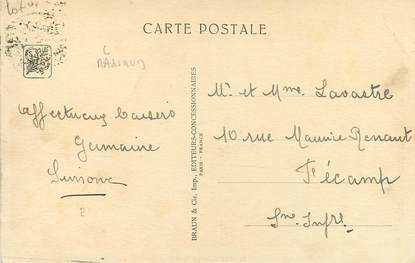 CARTE POSTALE
Affectueux baisers
Germaine
Simone
BRAUN & Cie, Imp., EDITEURS-CONCESSIONNAIRES
PARIS - FRANCE
Mr et Mme Lavastre
10 rue Maurice Renault
Fécamp
Sne Infre